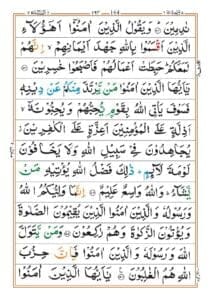 نٰدِمِيۡنَ وَيَقُوۡلُ الَّذِيۡنَ اٰمَنُوۡۤا اَهٰٓؤُلَآءِ
الَّذِيۡنَ اَقۡسَمُوۡا بِاللّٰهِ جَهۡدَ اَيۡمَانِهِمۡ اِنَّهُمۡ
لَمَعَكُمۡ حَبِطَتۡ اَعۡمَالُهُمۡ فَاَصۡبَحُوۡا خٰسِرِيۡنَ
يٰۤاَيُّهَا الَّذِيۡنَ اٰمَنُوۡا مَنۡ يَّرۡتَدَّ مِنۡكُمۡ عَنۡ دِيۡنِهٖ
فَسَوۡفَ يَاۡتِى اللّٰهُ بِقَوۡمٍ يُّحِبُّهُمۡ وَيُحِبُّوۡنَهٗۤ
اَذِلَّةٍ عَلَى الۡمُؤۡمِنِيۡنَ اَعِزَّةٍ عَلَى الۡكٰفِرِيۡنَ
يُجَاهِدُوۡنَ فِىۡ سَبِيۡلِ اللّٰهِ وَلَا يَخَافُوۡنَ
لَوۡمَةَ لَآئِمٍ ذٰلِكَ فَضۡلُ اللّٰهِ يُؤۡتِيۡهِ مَنۡ
يَّشَآءُ وَاللّٰهُ وَاسِعٌ عَلِيۡمٌ اِنَّمَا وَلِيُّكُمُ اللّٰهُ
وَرَسُوۡلُهٗ وَالَّذِيۡنَ اٰمَنُوا الَّذِيۡنَ يُقِيۡمُوۡنَ الصَّلٰوةَ
وَيُؤۡتُوۡنَ الزَّكٰوةَ وَهُمۡ رٰكِعُوۡنَ وَمَنۡ يَّتَوَلَّ
اللّٰهَ وَرَسُوۡلَهٗ وَالَّذِيۡنَ اٰمَنُوۡا فَاِنَّ حِزۡبَ
اللّٰهِ هُمُ الۡغٰلِبُوۡنَ يٰۤاَيُّهَا الَّذِيۡنَ اٰمَنُوۡا